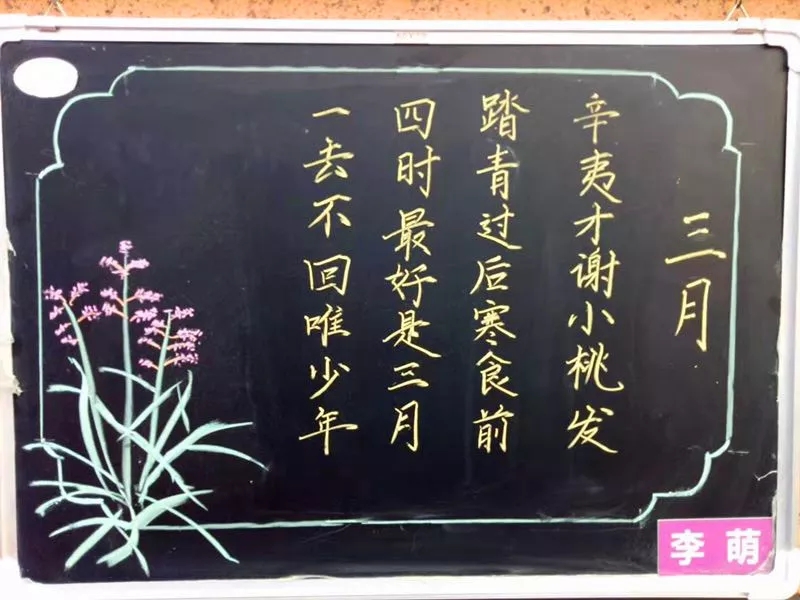 三月
辛夷才谢小桃发
踏青过后寒食前
四时最好是三月
一去不回唯少年
李萌